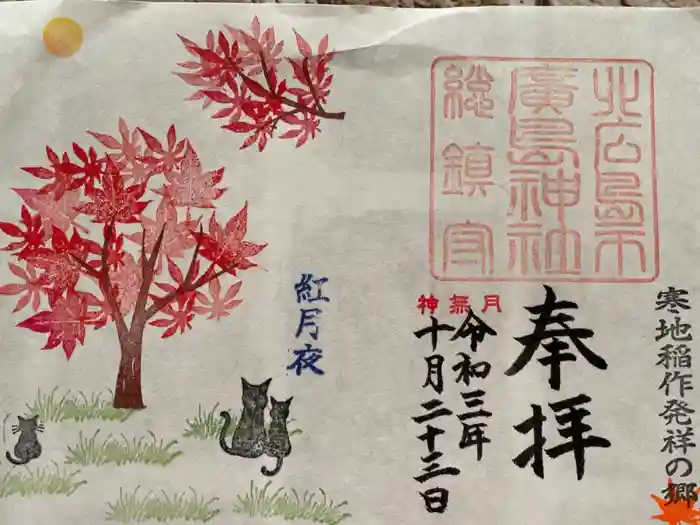 寒地稲作発祥の郷
北広島市
廣島神社
総鎮守
奉拝
月無神
令和三年
十月二十三日
紅月夜